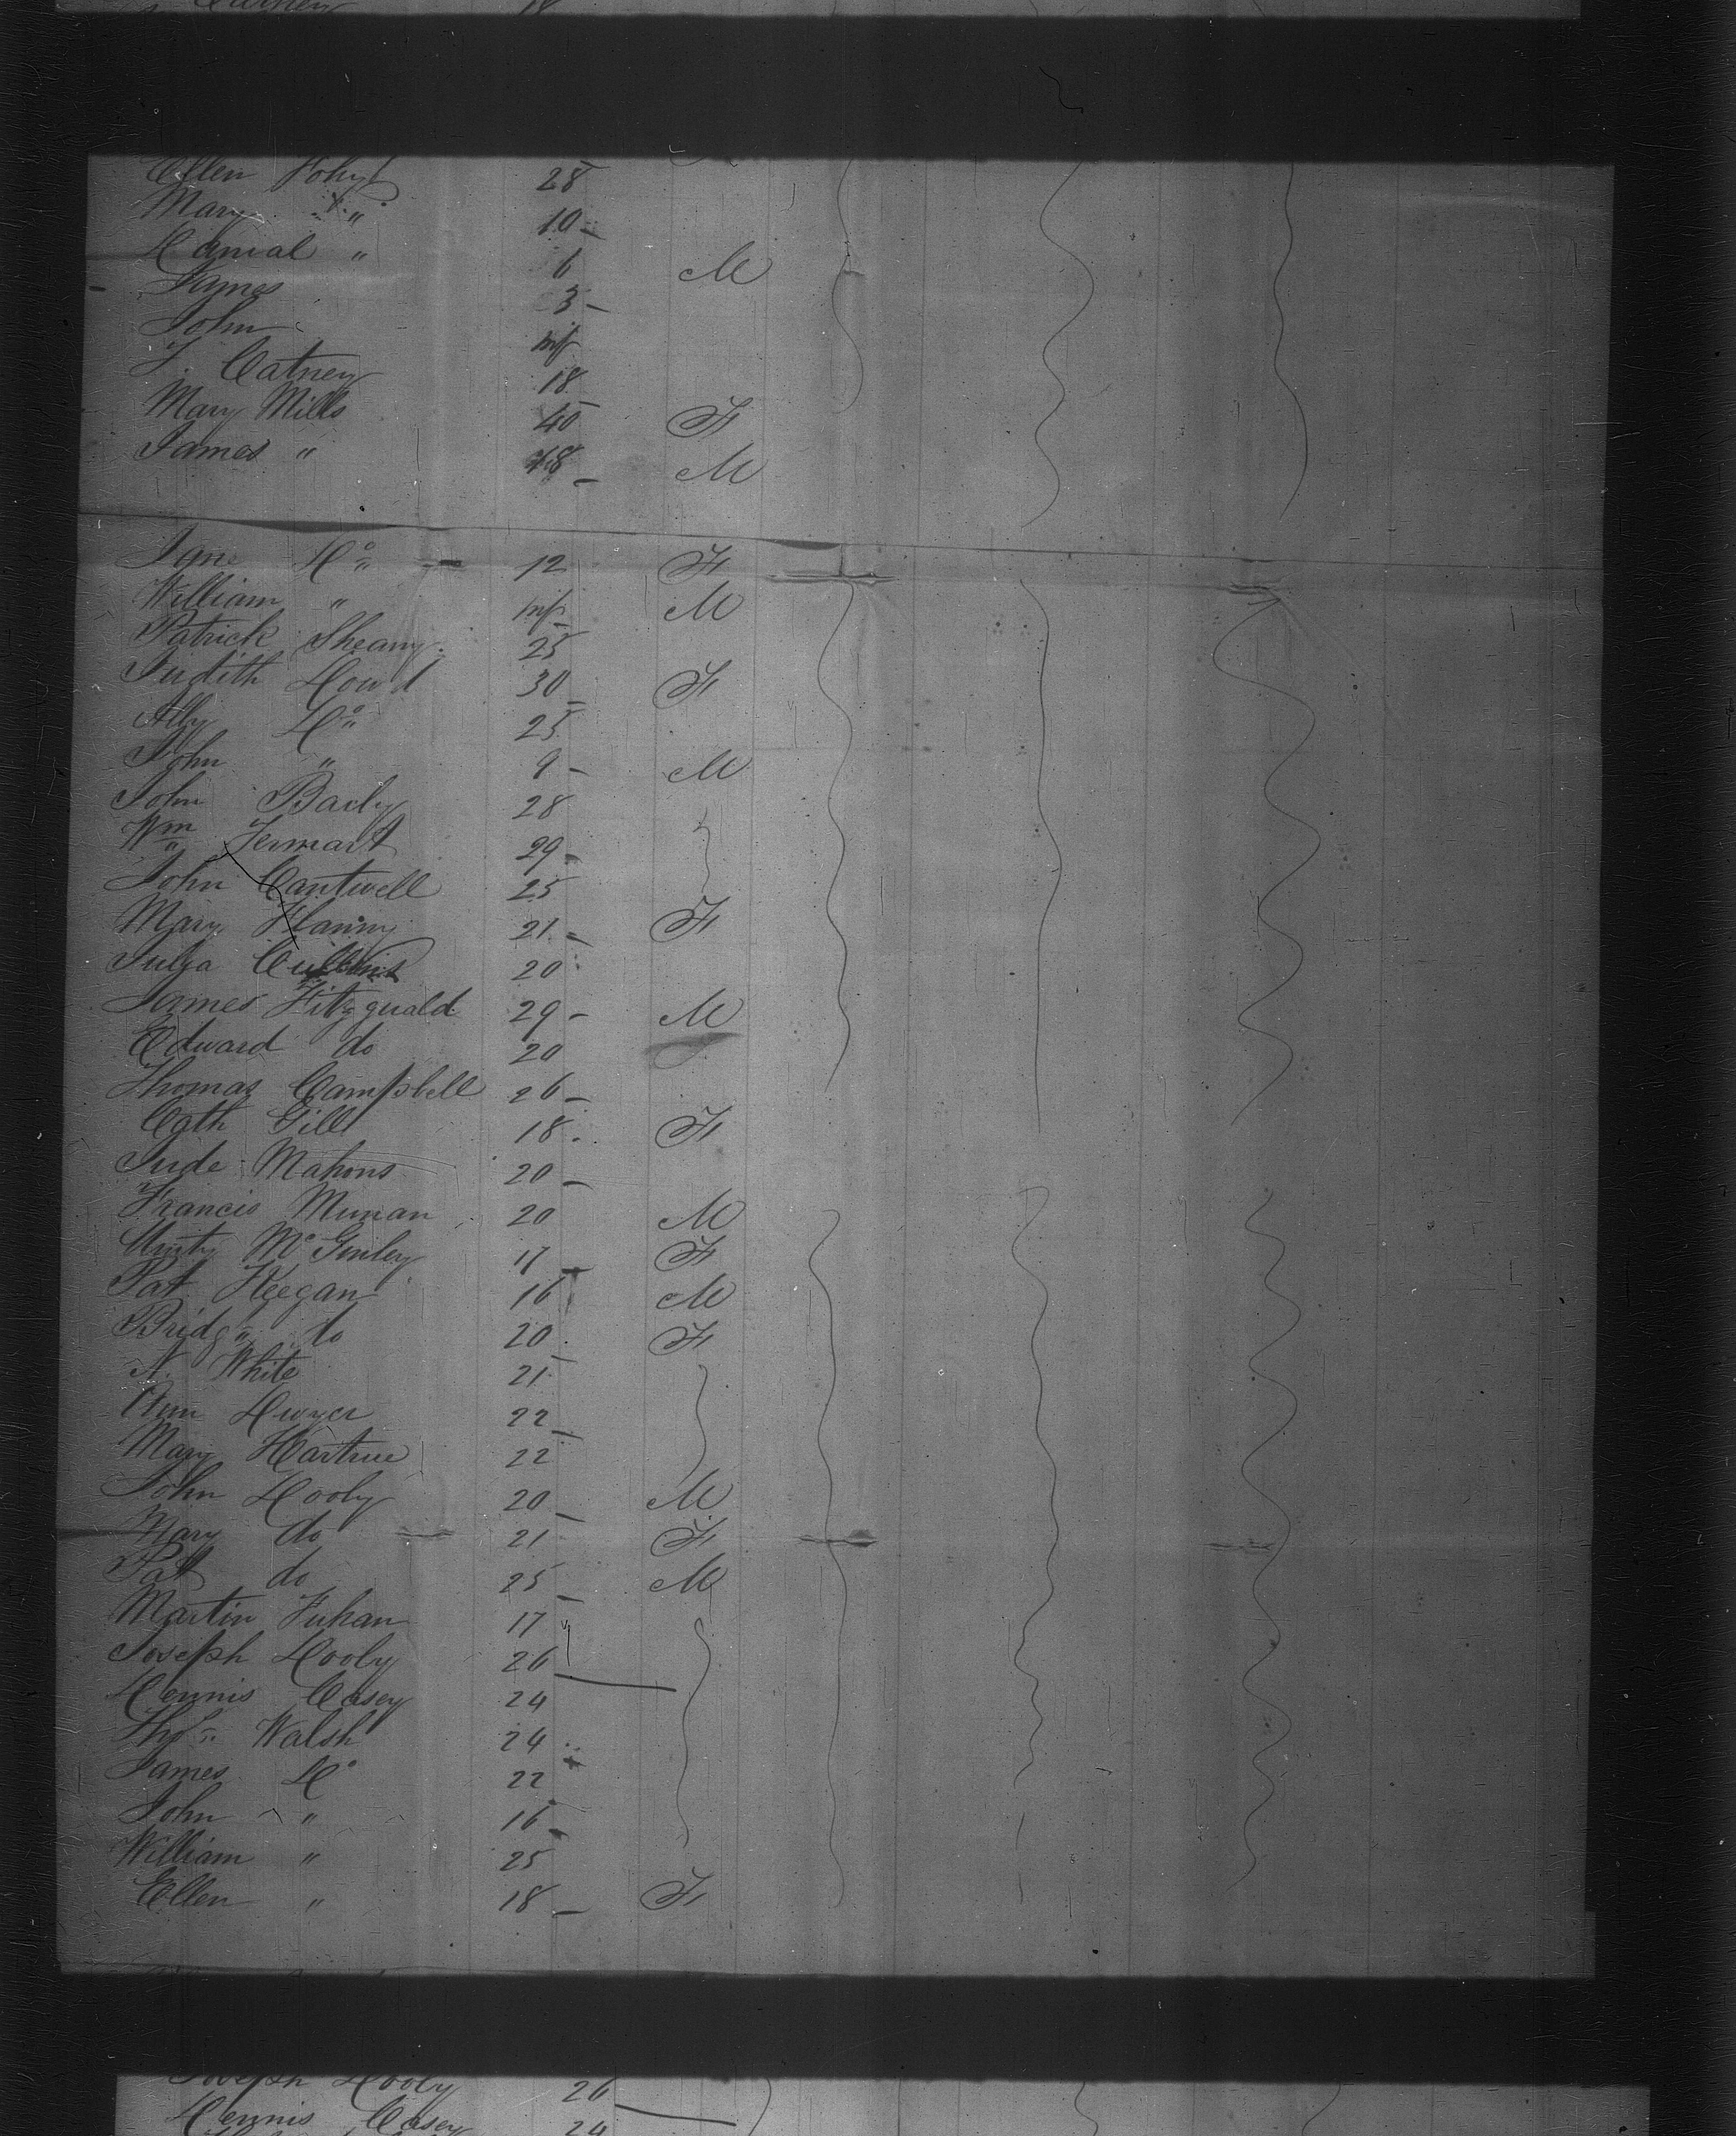 Carney 18
Ellen Fohy 28
Mary " 10
Danial " 6 M
James 3
John inf
J. Catney 18
Mary Mills 40 F
James " 18 M
Jane Do 12 F
William " inf M
Patrick Sheany 25
Judith Dowd 30 F
Ally Do 25
John " 9 M
John Baily 28
Wm 29
John Cantwell 25
Mary Hanny 21 F
Julia 20
James Fitzguald 29 M
Edward do 20
Thomas Campbell 26
Cath Gill 18 F
Jude Mahons 20
Francis Munan 20 M
Unity McGinley 17 F
Pat Keegan 16 M
Bridg do 20 F
N. White 21
Ann Dwyer 22
Mary Hartnee 22
John Dooly 20 M
Mary do 21 F
Pat do 25 M
Martin Fuhan 17
Joseph Dooly 26
Dennis Casey 24
Thos Walsh 24
James Do 22
John " 16
William " 25
Ellen " 18 F
Joseph Dooly 26
Dennis Casey 24